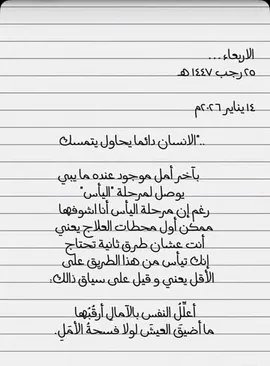 الاربعاء...
٢٥ رجب ١٤٤٧ هـ
١٤ يناير ٢٠٢٦م
"الانسان دائما يحاول يتمسك..
بآخر أمل موجود عنده ما يبي
يوصل لمرحلة "اليأس"
رغم إن مرحلة اليأس أنا اشوفها
ممكن أول محطات العلاج يعني
أنت عشان طرق ثانية تحتاج
إنك تيأس من هذا الطريق على
الأقل يعني و قيل على سياق ذالك:
أعلِّلُ النفس بالآمالِ أرقُبُها
ما أضيَقَ العيشَ لولا فسحةُ الأمَلِ.